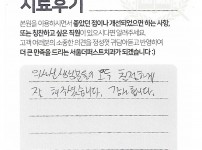 치료후기
본원을 이용하시면서 좋았던 점이나 개선되었으면 하는 사항,
또는 칭찬하고 싶은 직원이 있으시다면 알려주세요.
고객 여러분의 소중한 의견을 정성껏 귀담아듣고 반영하여
더 큰 만족을 드리는 서울더퍼스트치과가 되겠습니다 :)
의사선생분들의 모두 친절하게
잘 해주셨습니다. 감사합니다.